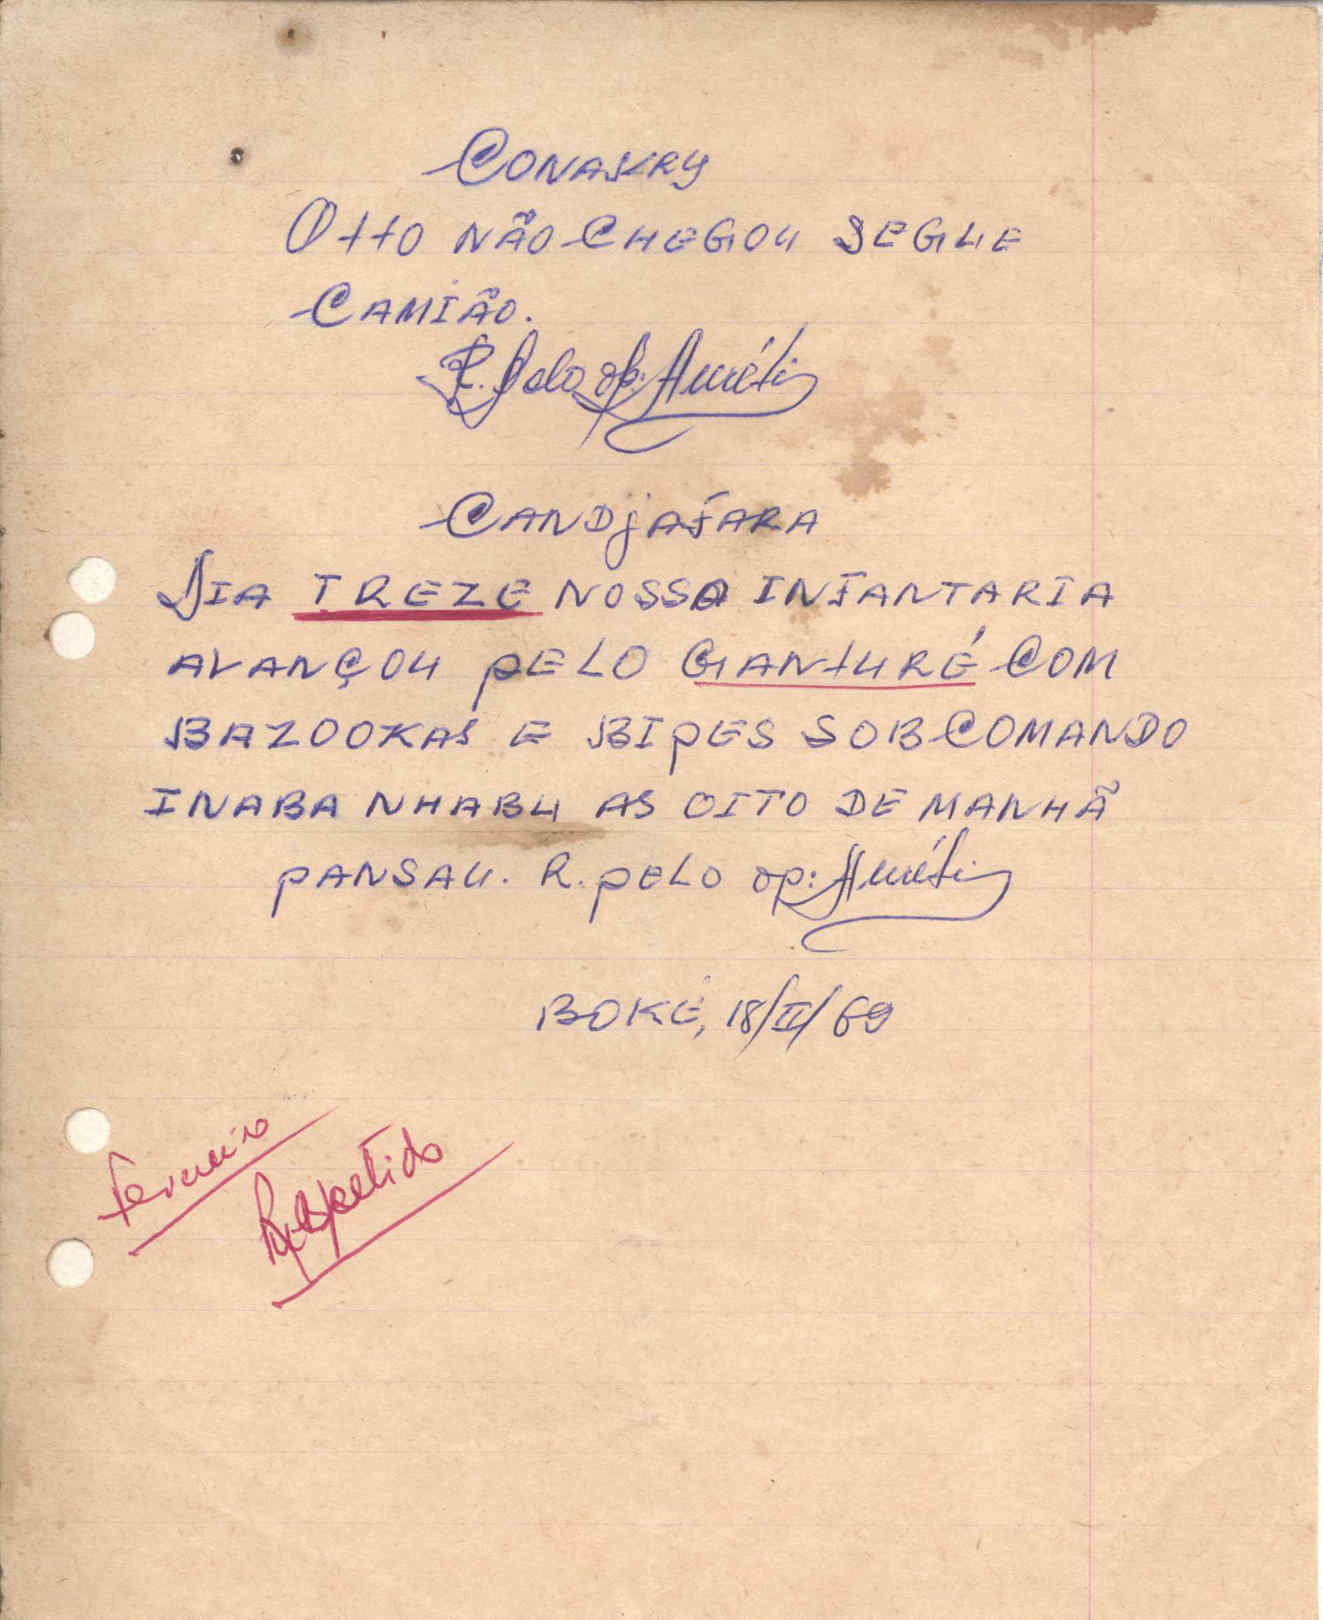 CONAKRY
OTTO NÃO CHEGOU SEGUE
CAMIÃO.
R. Pelo op: Aurélio
CANDJAFARA
DIA TREZE NOSSA INFANTARIA
AVANÇOU PELO GANTURÉ COM
BAZOOKAS E BIPES SOB COMANDO
INABA NHABU AS OITO DE MANHÃ
PANSAU. R. PELO op: Aurélio
BOKÉ, 18/II/69
fevereiro
Respetido